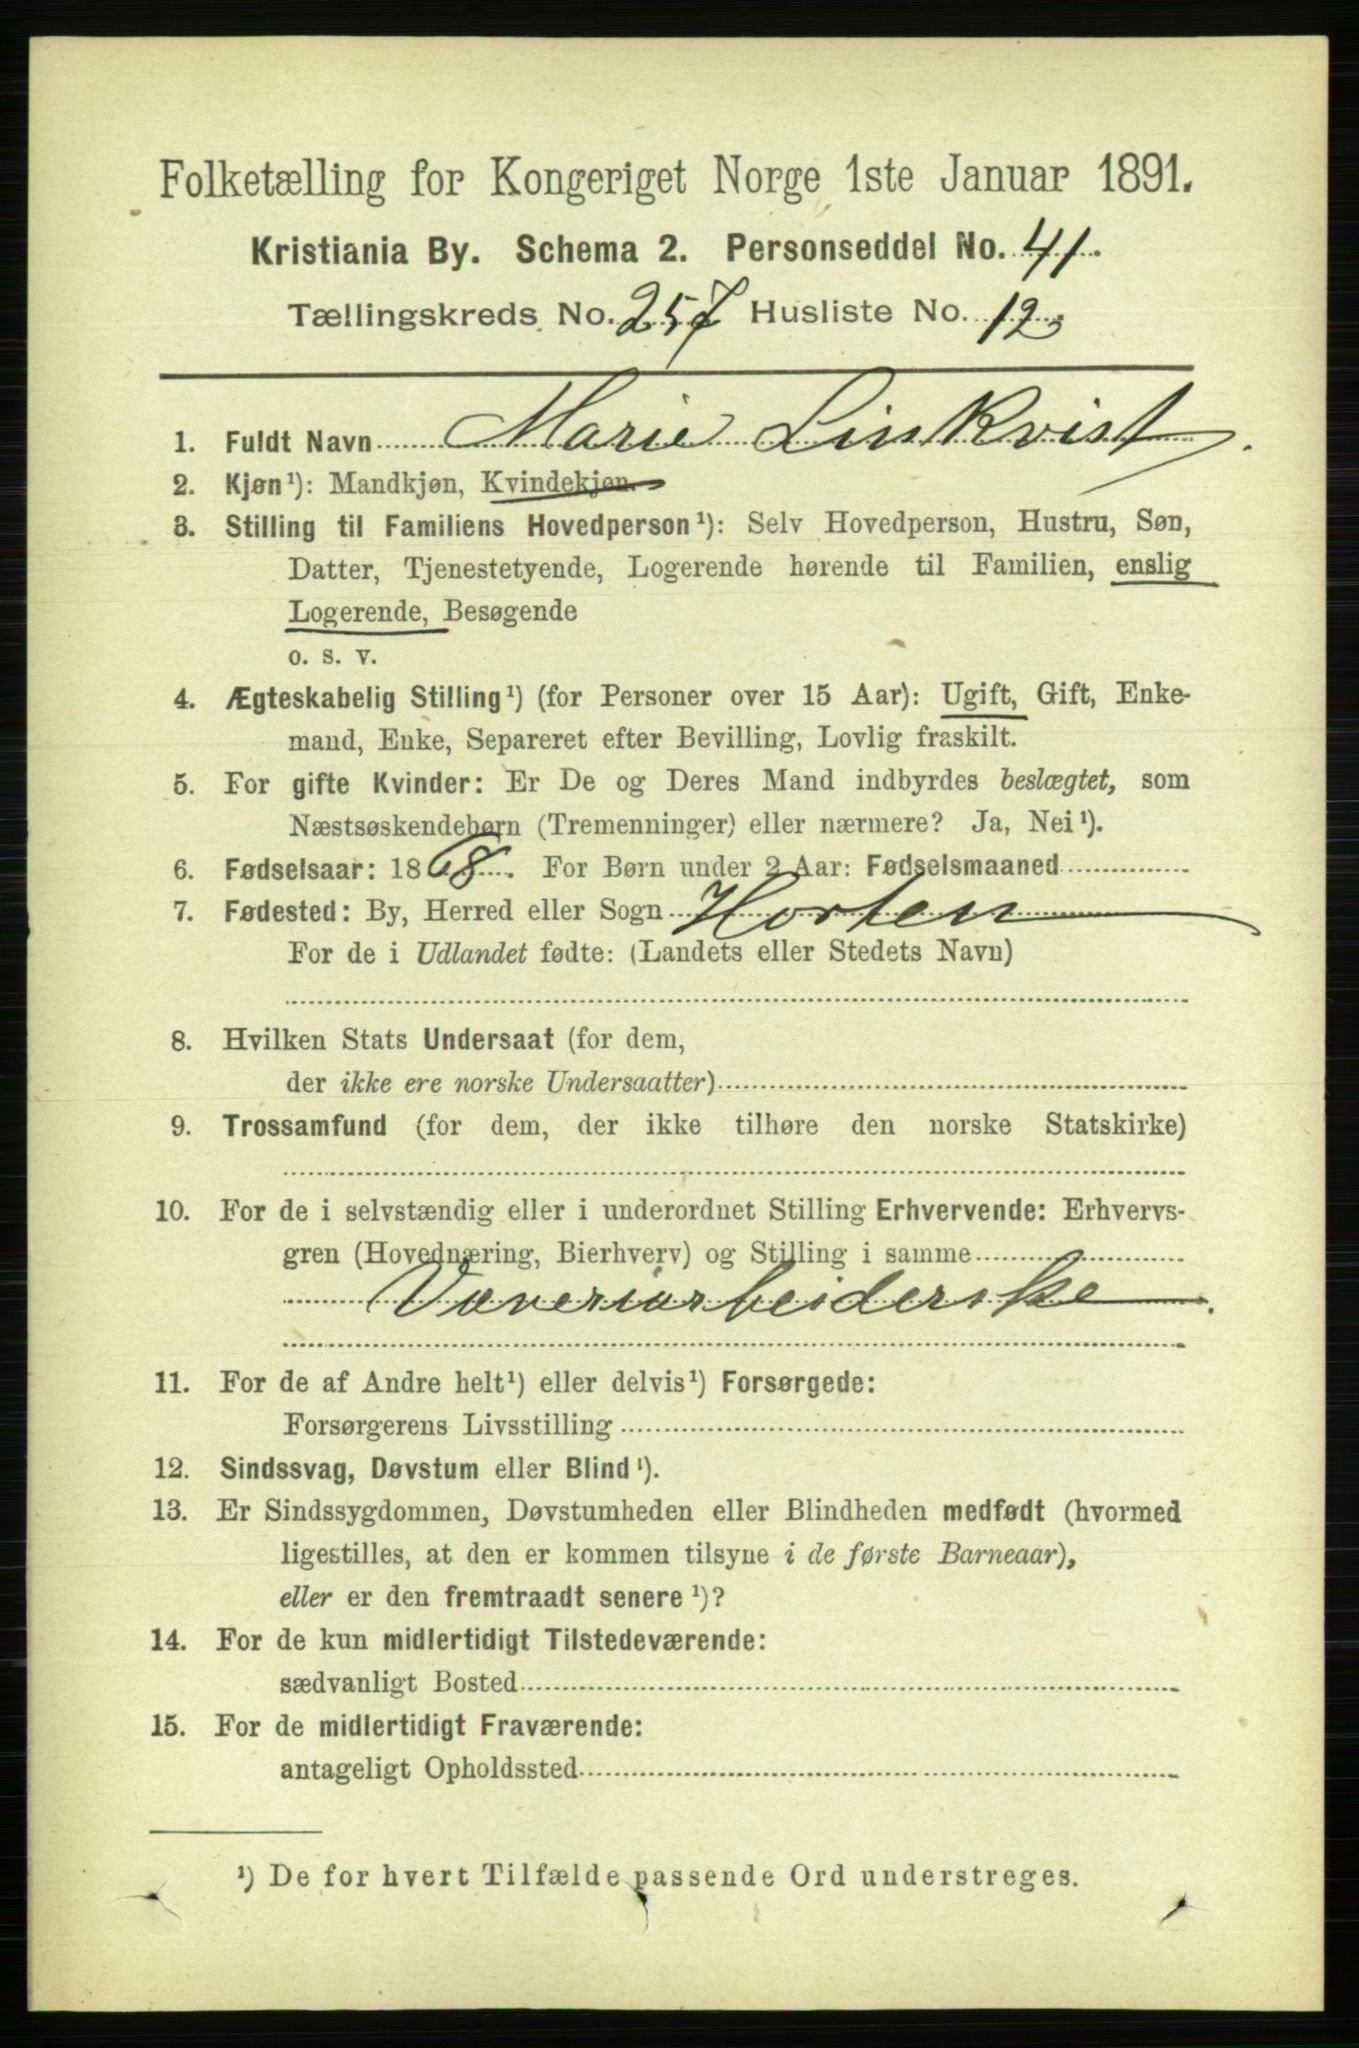 Folketælling for Kongeriget Norge 1ste Januar 1891.
Kristiania By. Schema 2. Personseddel No. 41.
Tællingskreds No. 257 Husliste No. 12
1. Fuldt Navn Marie Linkvist.
2. Kjøn¹): Mandkjøn, Kvindekjøn.
3. Stilling til Familiens Hovedperson¹): Selv Hovedperson, Hustru, Søn,
Datter, Tjenestetyende, Logerende hørende til Familien, enslig
Logerende, Besøgende
o. s. v.
4. Ægteskabelig Stilling¹) (for Personer over 15 Aar): Ugift, Gift, Enke-
mand, Enke, Separeret efter Bevilling, Lovlig fraskilt.
5. For gifte Kvinder: Er De og Deres Mand indbyrdes beslægtet, som
Næstsøskendebørn (Tremenninger) eller nærmere? Ja, Nei¹).
6. Fødselsaar: 1868. For Børn under 2 Aar: Fødselsmaaned
7. Fødested: By, Herred eller Sogn Horten
For de i Udlandet fødte: (Landets eller Stedets Navn)
8. Hvilken Stats Undersaat (for dem,
der ikke ere norske Undersaatter)
9. Trossamfund (for dem, der ikke tilhøre den norske Statskirke)
10. For de i selvstændig eller i underordnet Stilling Erhvervende: Erhvervs-
gren (Hovednæring, Bierhverv) og Stilling i samme
Væveriarbeiderske.
11. For de af Andre helt¹) eller delvis¹) Forsørgede:
Forsørgerens Livsstilling
12. Sindssvag, Døvstum eller Blind¹).
13. Er Sindssygdommen, Døvstumheden eller Blindheden medfødt (hvormed
ligestilles, at den er kommen tilsyne i de første Barneaar),
eller er den fremtraadt senere¹)?
14. For de kun midlertidigt Tilstedeværende:
sædvanligt Bosted
15. For de midlertidigt Fraværende:
antageligt Opholdssted
¹) De for hvert Tilfælde passende Ord understreges.